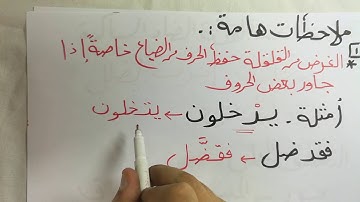 ملاحظات هامة :.
١ * الغرض من القلقلة حفظ الحرف من الضياع خاصةً إذا
جاور بعض الحروف
أمثلة . يدْخلون ← يتخلون
فقد ضل ← فقضَّل